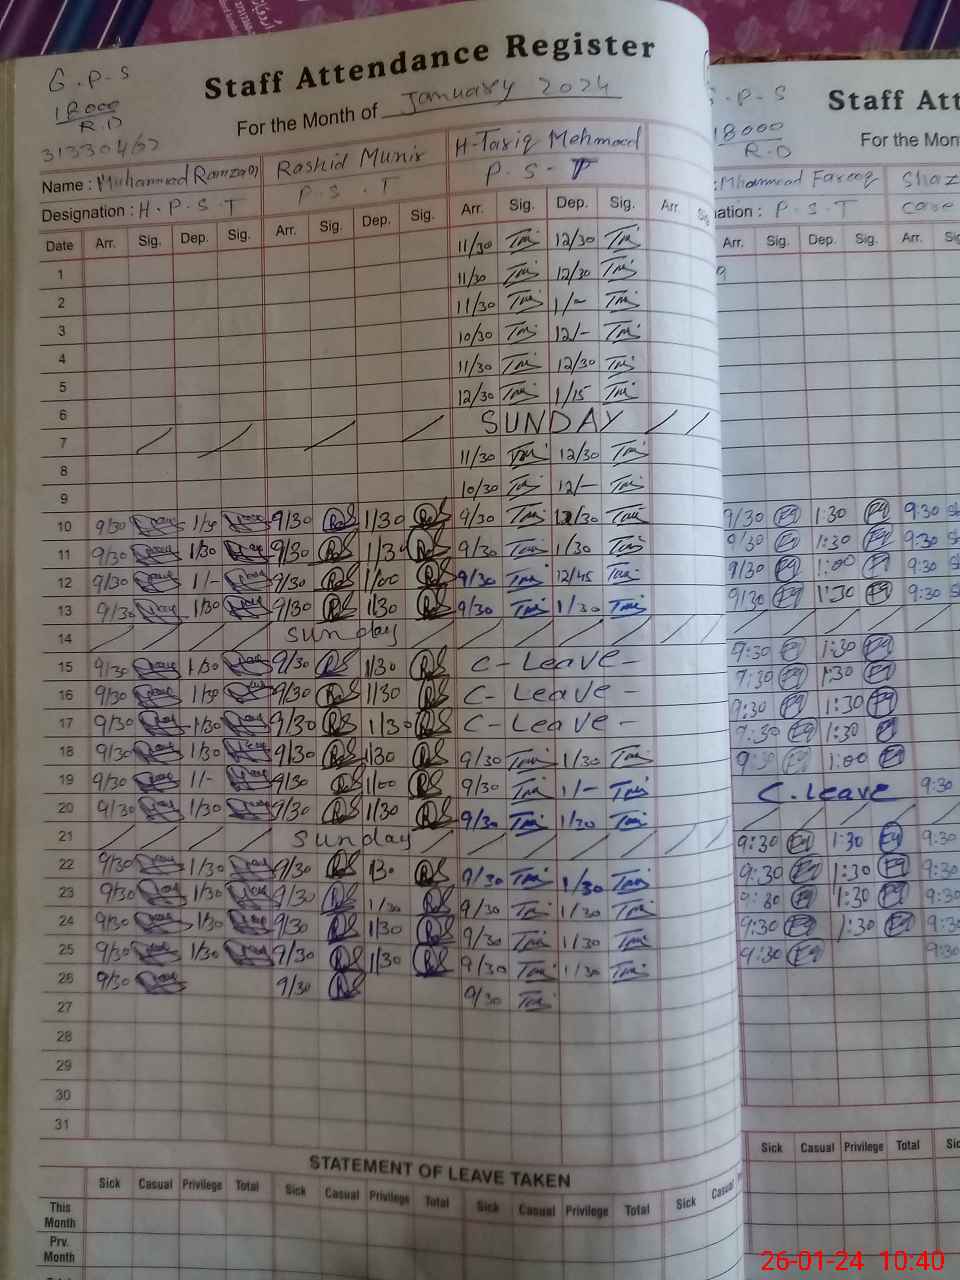 G.P-S
18000
R.D
31330462
Staff Attendance Register
For the Month of January 2024
Name : Muhammad Ramzan Rashid Munir H-Tariq Mehmood
Designation : H.P.S.T P.S.T P.S-T
Date Arr. Sig. Dep. Sig. Arr. Sig. Dep. Sig. Arr. Sig. Dep. Sig. Arr.
11/30 12/30
1 11/30 12/30
2 11/30 1/-
3 10/30 12/-
4 11/30 12/30
5 12/30 1/15
6 SUNDAY
7 11/30 12/30
8 10/30 12/-
9
10 9/30 1/30 9/30 1/30 9/30
11 9/30 1/30 9/30 1/30 9/30 1/30
12 9/30 1/- 9/30 1/00 9/30 12/45
13 9/30 1/30 9/30 1/30 9/30 1/30
14 sunday
15 9/30 1/30 9/30 1/30 C-Leave-
16 9/30 1/30 9/30 1/30 C-Leave-
17 9/30 1/30 9/30 1/30 C-Leave-
18 9/30 1/30 9/30 1/30 9/30 1/30
19 9/30 1/- 9/30 1/00 9/30 1/-
20 9/30 1/30 9/30 1/30 9/30 1/30
21 sunday
22 9/30 1/30 9/30 1/30 9/30 1/30
23 9/30 1/30 9/30 1/30 9/30 1/30
24 9/30 1/30 9/30 1/30 9/30 1/30
25 9/30 1/30 9/30 1/30 9/30 1/30
26 9/30 9/30 9/30
27
28
29
30
31
STATEMENT OF LEAVE TAKEN
Sick Casual Privilege Total Sick Casual Privilege Total Sick Casual Privilege Total Sick Casual
This Month
Prv. Month
.P-S
18000
R.D
Staff Att
For the Mon
: Mhammad Farooq Shaz
nation : P.S.T
Arr. Sig. Dep. Sig. Arr.
9/30 1:30 9:30
9/30 1:30 9:30
9/30 1:00 9:30
9/30 1:30 9:30
9:30 1:30
9:30 1:30
9:30 1:30
9:30 1:30
9:30 1:00
C.Leave 9:30
9:30 1:30 9:30
9:30 1:30 9:30
9:30 1:30 9:30
9:30 1:30 9:30
9:30 9:30
Sick Casual Privilege Total
26-01-24 10:40